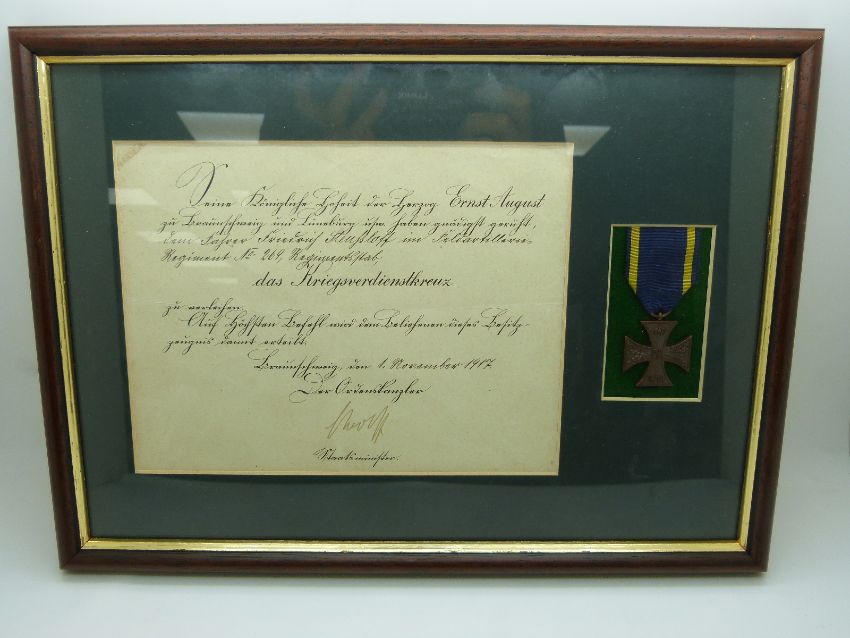 Seine Königliche Hoheit der Herzog Ernst August
zu Braunschweig und Lüneburg usw. haben gnädigst geruht,
dem Fahrer Friedrich im Feldartillerie-
Regiment No 269, Regimentsstab
das Kriegsverdienstkreuz
zu verleihen.
Auf Höchsten Befehl wird dem Beliehenen dieses Besitz-
zeugnis damit erteilt.
Braunschweig, den 1. November 1917.
Der Ordenskanzler
Wolff
Staatsminister.